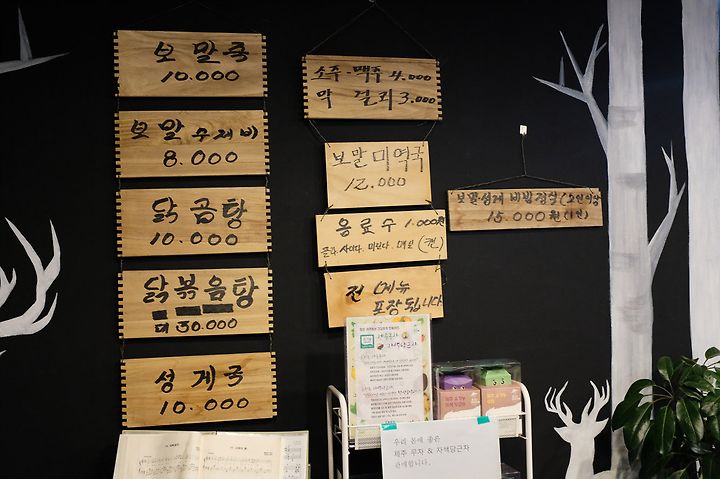 보말죽
10.000
보말 수제비
8.000
닭곰탕
10.000
닭볶음탕
대 30.000
성게국
10.000
소주·맥주 4.000
막걸리 3.000
보말미역국
12.000
음료수 1.000원
콜라.사이다. (캔)
전 메뉴
포장됩니다
보말·성게 비빔정식(2인이상)
15.000원(1인)
우리 몸에 좋은
제주 무차 & 자색당근차
판매합니다.